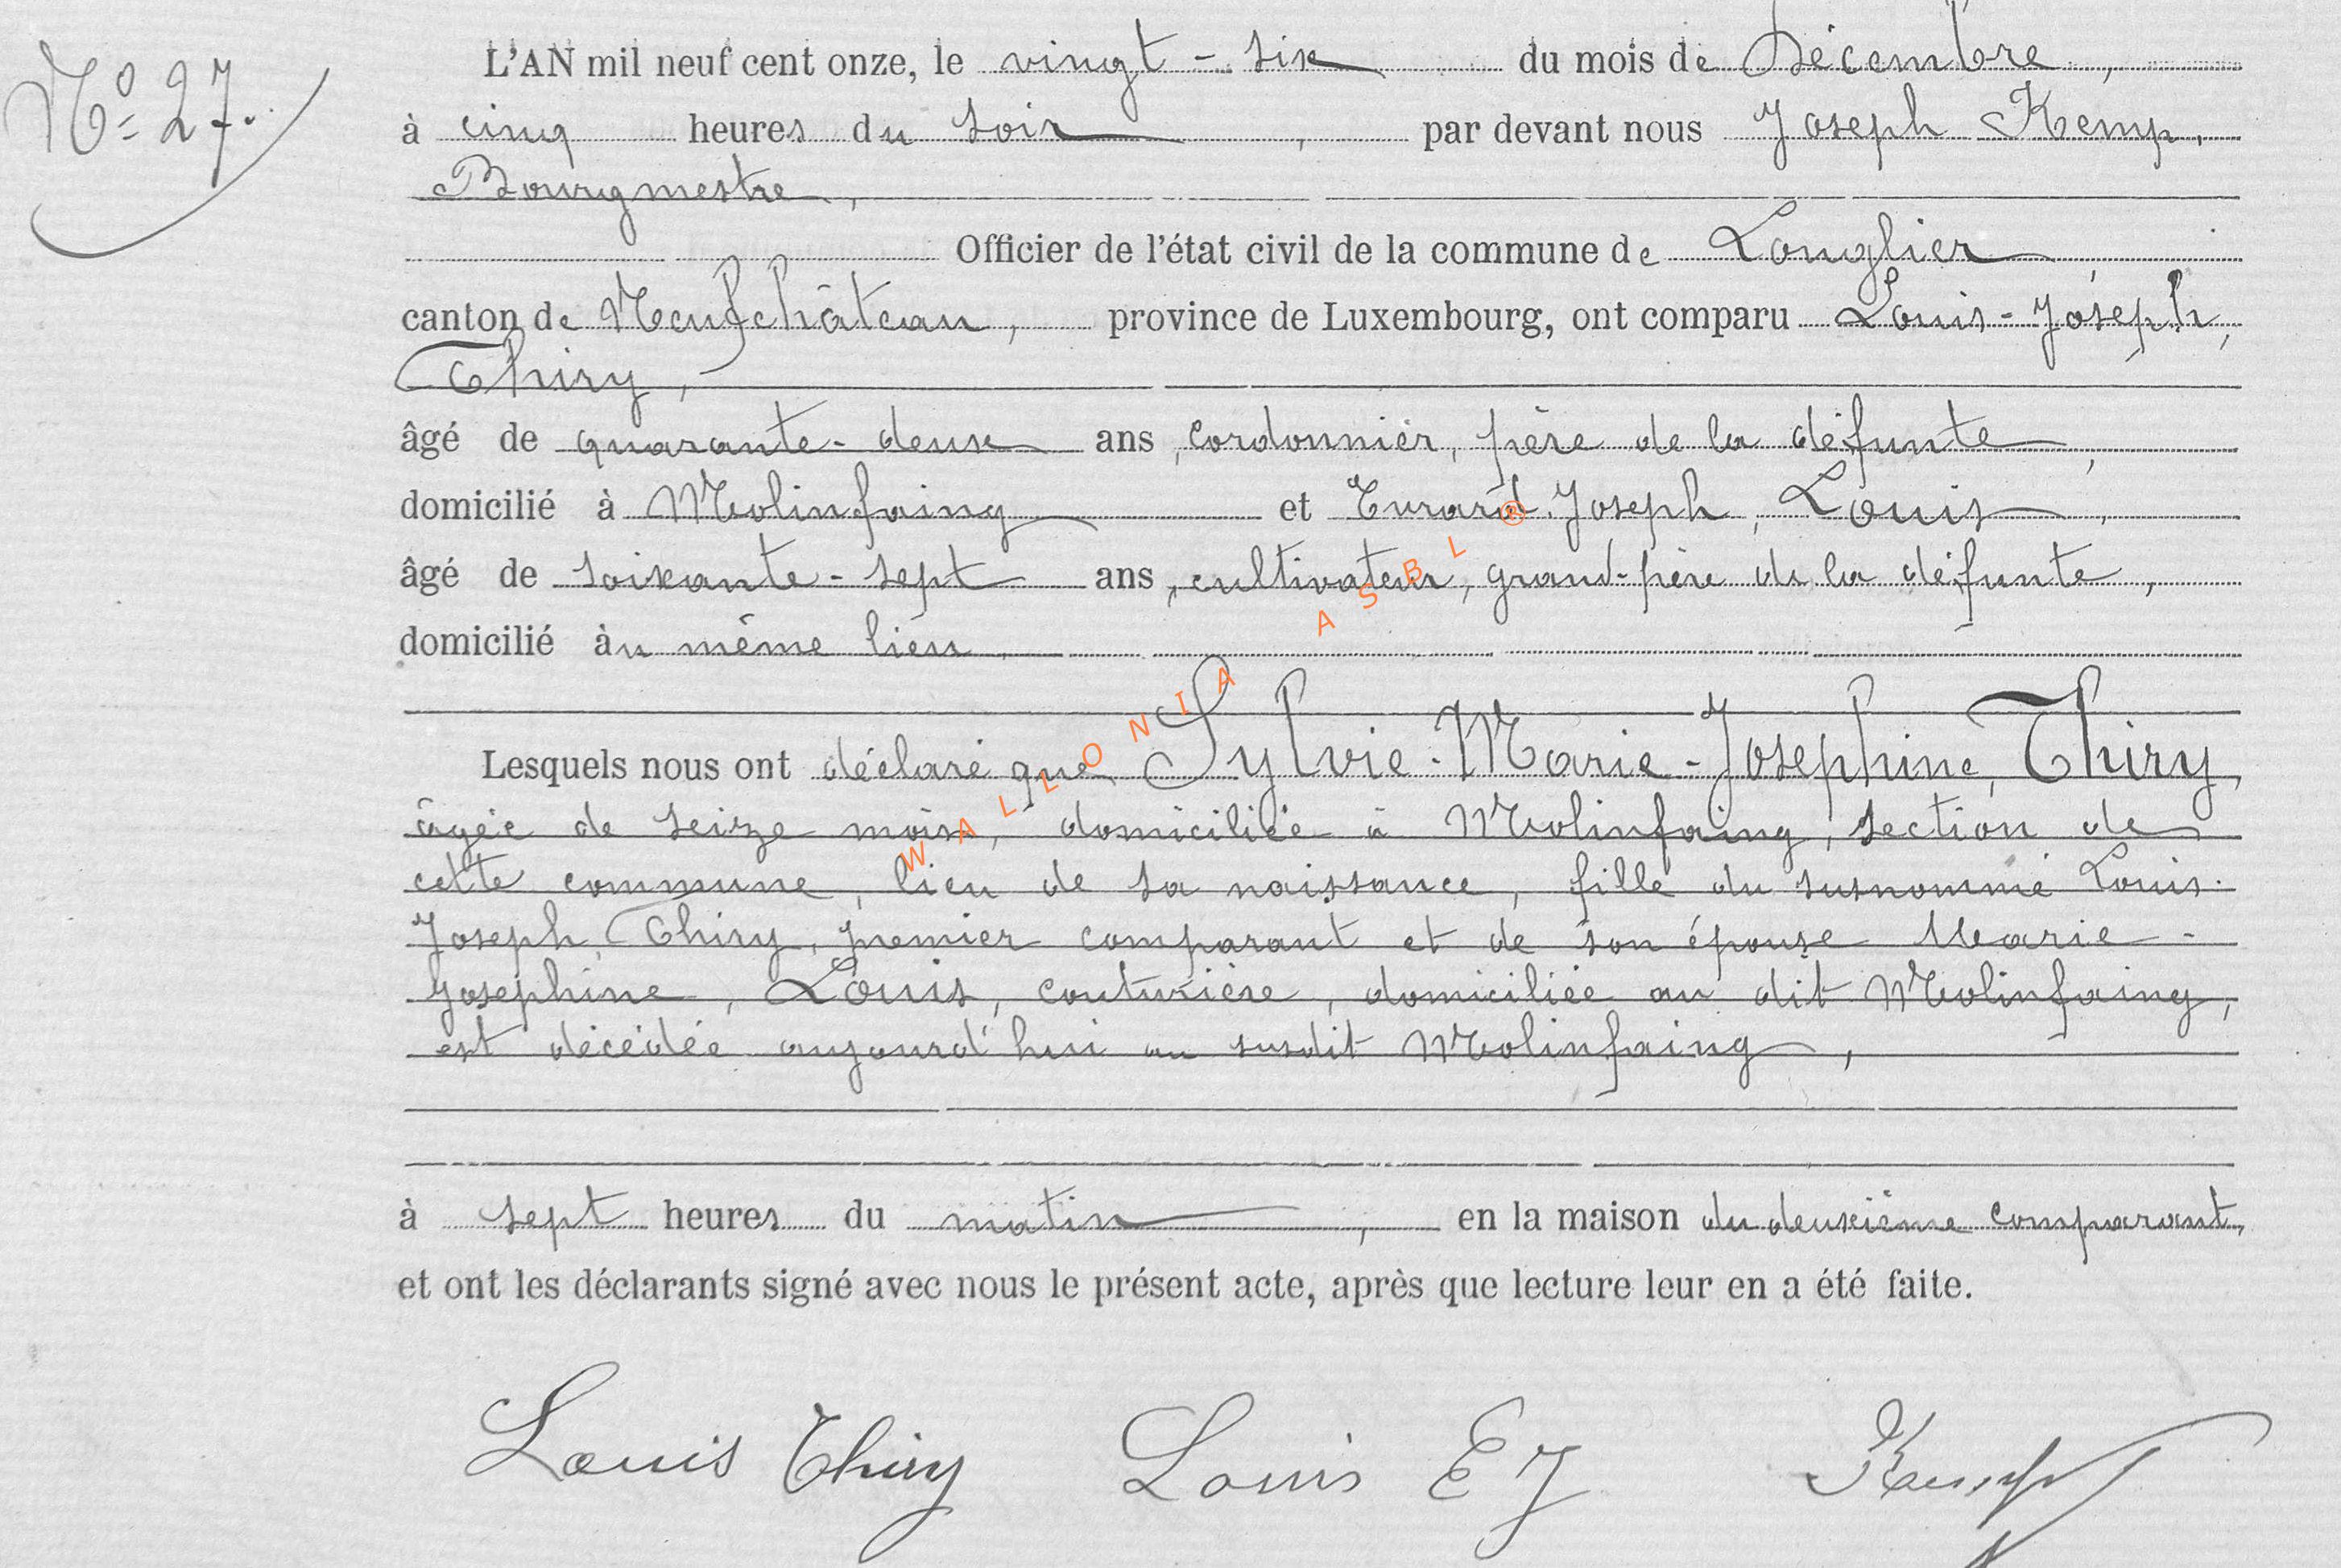 N° 27.
L'AN mil neuf cent onze, le vingt - six du mois de Décembre,
à cinq heures du soir, par devant nous Joseph Kemp,
Bourgmestre,
Officier de l'état civil de la commune de Longlier
canton de Neufchâteau, province de Luxembourg, ont comparu Louis-Joseph,
Thiry,
âgé de quarante-deux ans, cordonnier, père de la défunte,
domicilié à Molinfaing et Evrard Joseph, Louis,
âgé de soixante-sept ans, cultivateur, grand-père de la défunte,
domicilié au même lieu
Lesquels nous ont déclaré que Sylvie-Marie-Josephine, Thiry,
âgée de seize mois, domiciliée à Molinfaing, section de
cette commune, lieu de sa naissance, fille du susnommé Louis-
Joseph, Thiry, premier comparant et de son épouse Marie-
Josephine, Louis, couturière, domiciliée au dit Molinfaing,
est décédée aujourd'hui au susdit Molinfaing,
à sept heures du matin, en la maison du deuxième comparant,
et ont les déclarants signé avec nous le présent acte, après que lecture leur en a été faite.
Louis Thiry Louis E J Kemp
WALLONIA ASBL ®